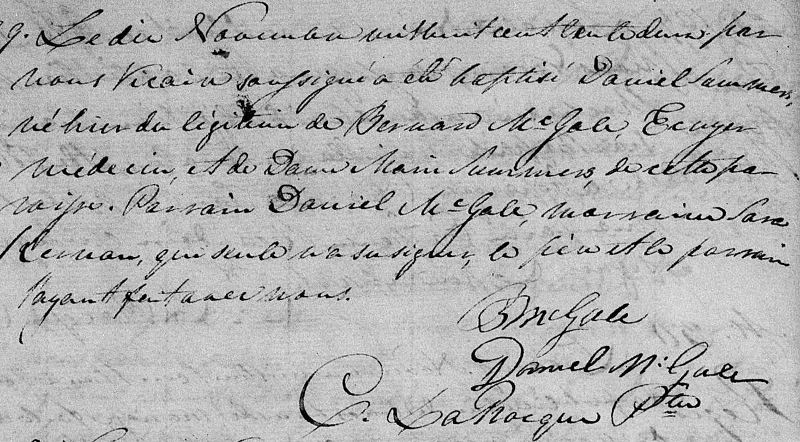 9. Le dix Novembre mil huit cent trente deux par
nous Vicaire soussigné a été baptisé Daniel Summers,
né hier du légitime de Bernard McGale, Ecuyer
médecin, et de Dame Marie Summers, de cette pa-
roisse. Parrain Daniel McGale, marraine Sara
Kernan, qui seule n'a su signer, le père et le parrain
l'ayant fait avec nous.
B McGale
Daniel McGale
C. LaRocque Ptre